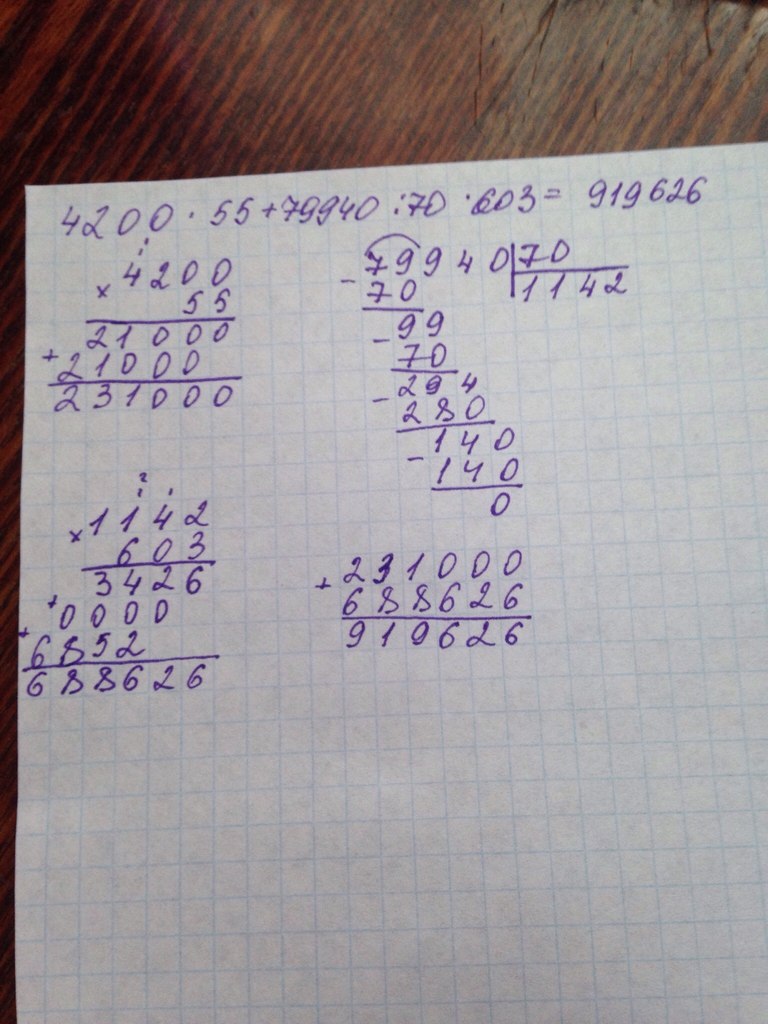 4200 · 55 + 79940 : 70 · 603 = 919626
4200
× 55
21000
+ 21000
231000
79940 | 70
- 70 1142
- 99
70
- 294
280
- 140
140
0
2
1142
× 603
3426
+ 0000
+ 6852
688626
231000
+ 688626
919626